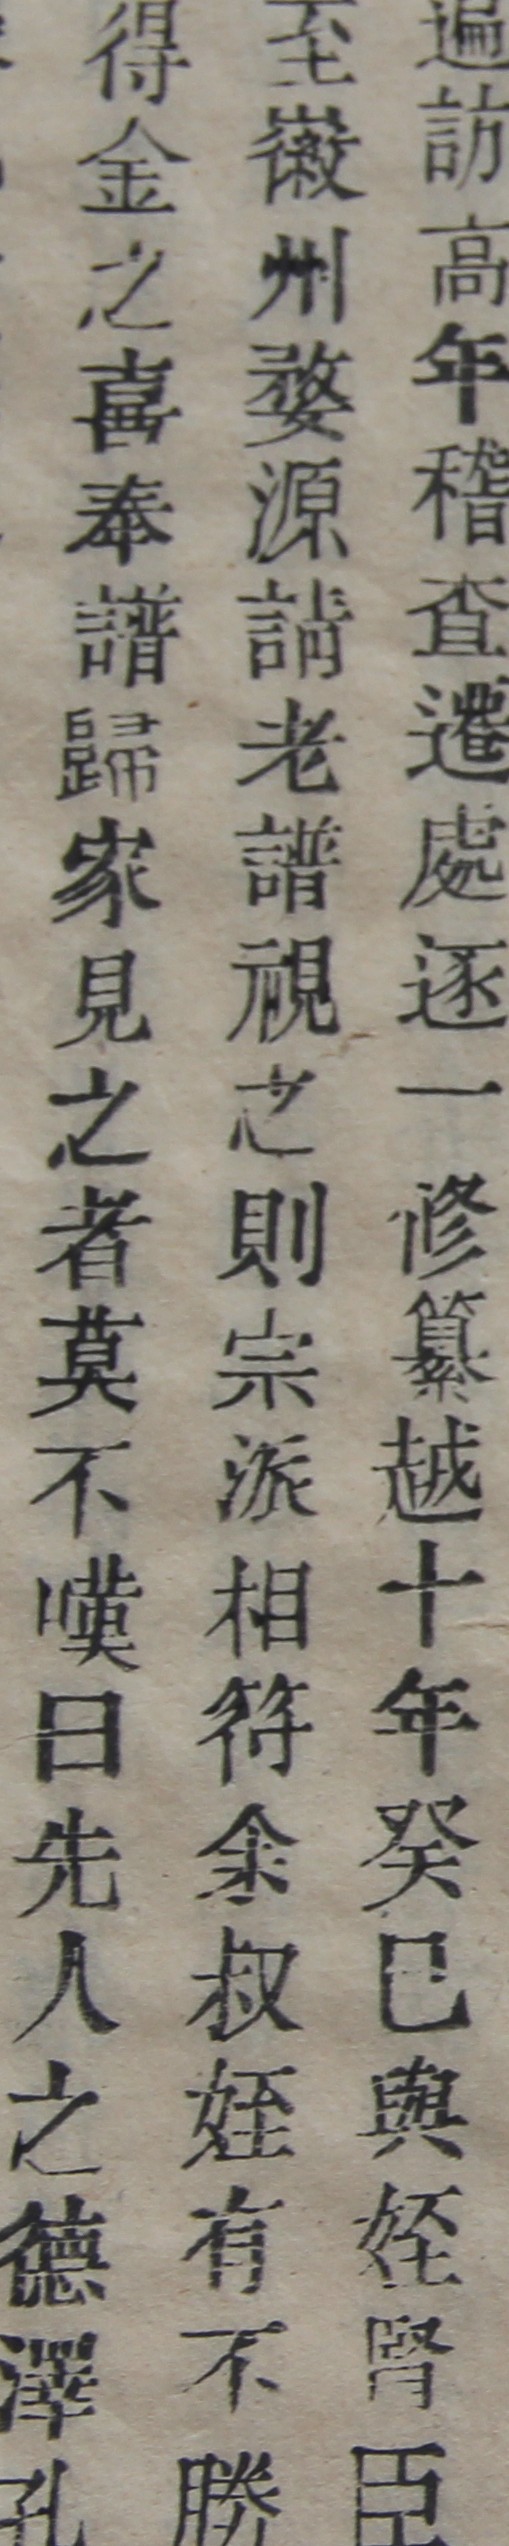 遍訪高年稽查遷處逐一修纂越十年癸巳與姪腎臣
至徽州婺源請老譜視之則宗派相符余叔姪有不勝
得金之喜奉譜歸家見之者莫不嘆曰先人之德澤孔